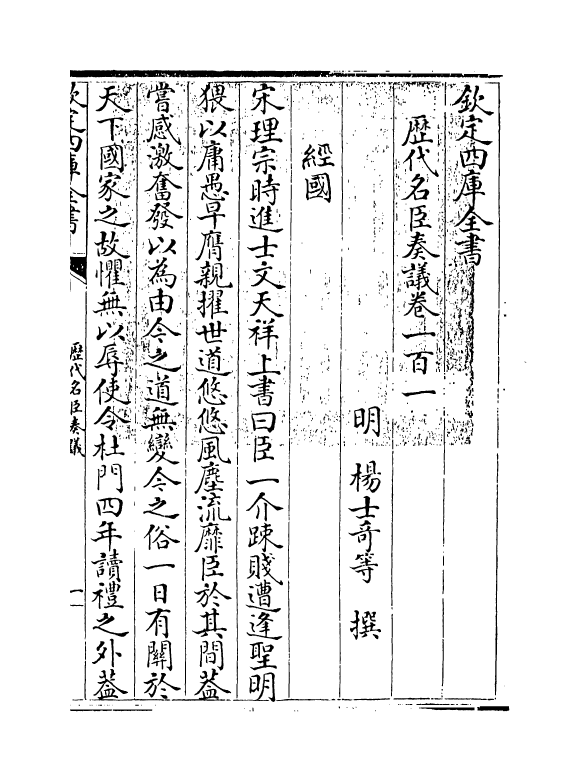 欽定四庫全書
歴代名臣奏議卷一百一
明　楊士竒等　撰
經國
宋理宗時進士文天祥上書曰臣一介踈賤遭逢聖明
猥以庸愚早膺親擢世道悠悠風塵流靡臣於其間葢
嘗感激奮發以為由今之道無變今之俗一日有關於
天下國家之故懼無以辱使令杜門四年讀禮之外葢
欽定四庫全書
歴代名臣奏議
一